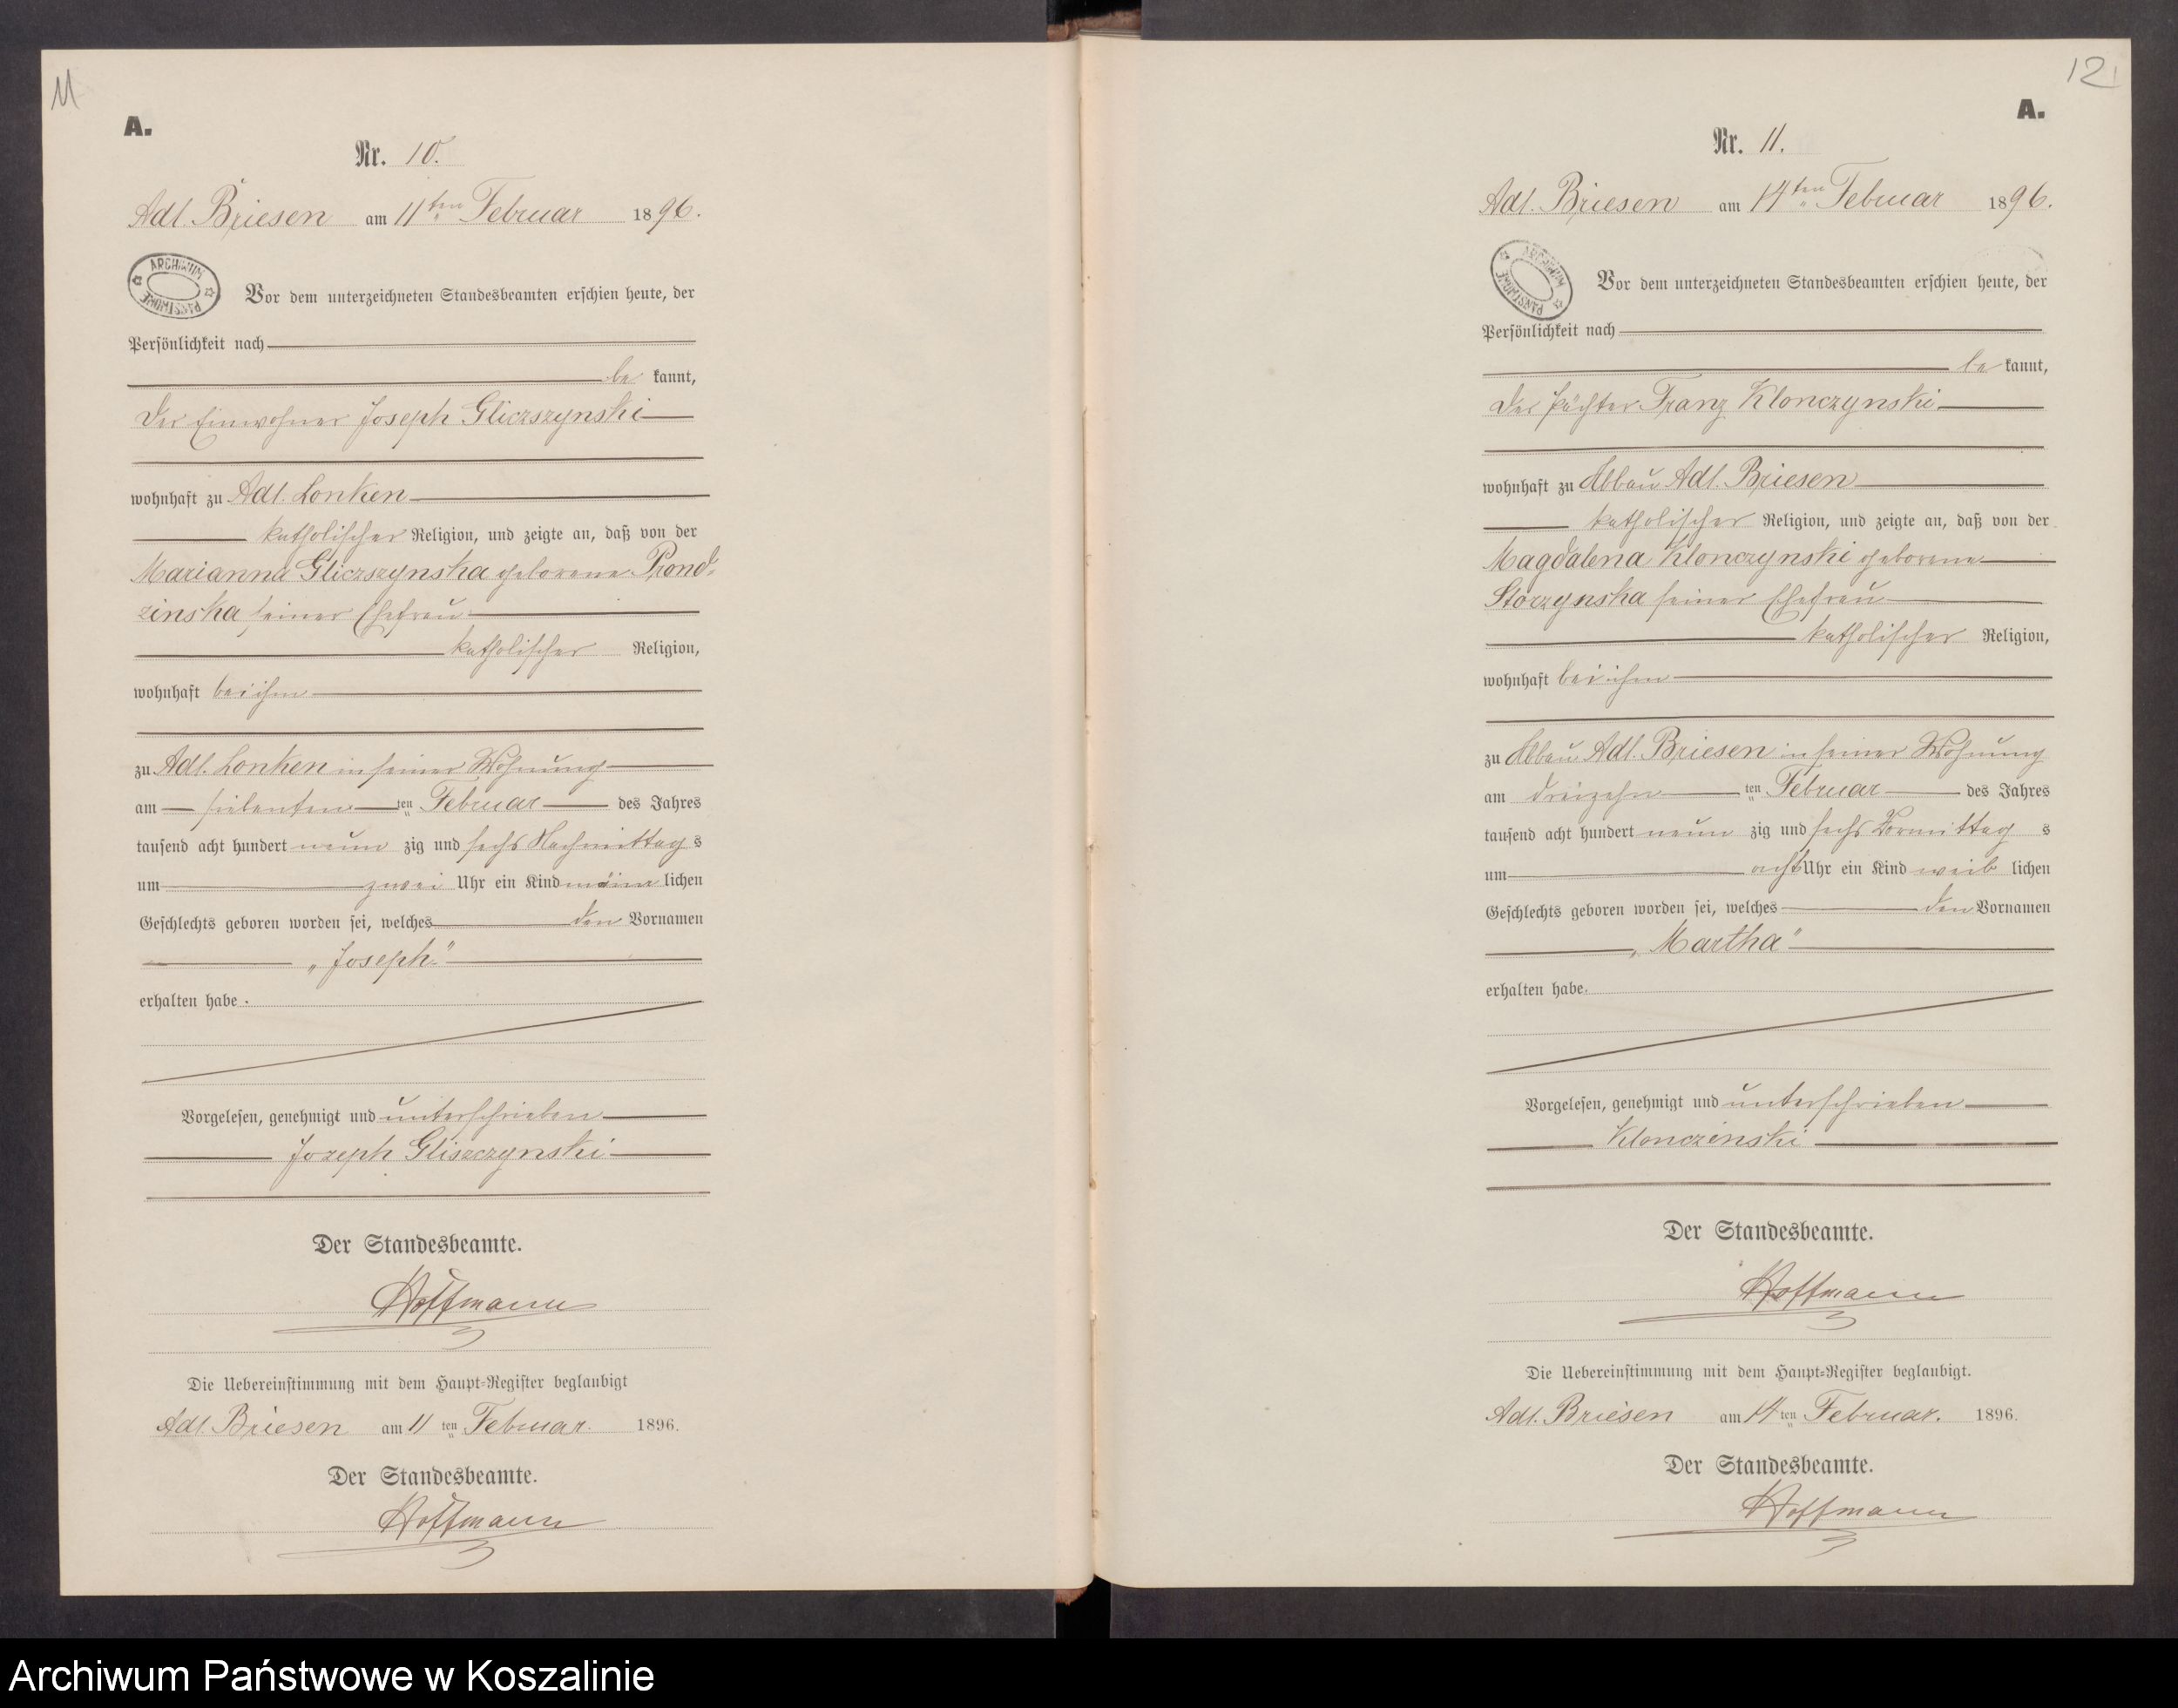 11
A.
Nr. 10.
Adl. Briesen am 11ten Februar 1896.
ARCHIWUM PAŃSTWOWE
Vor dem unterzeichneten Standesbeamten erschien heute, der
Persönlichkeit nach
be kannt,
der Einwohner Joseph Gliczszynski
wohnhaft zu Adl. Lonken
katholischer Religion, und zeigte an, daß von der
Marianna Gliczszynska geborene Prond-
zinska seiner Ehefrau
katholischer Religion,
wohnhaft bei ihm
zu Adl. Lonken in seiner Wohnung
am siebenten ten Februar des Jahres
tausend acht hundert neun zig und sechs Nachmittag s
um zwei Uhr ein Kind männ lichen
Geschlechts geboren worden sei, welches den Vornamen
„Joseph"
erhalten habe.
Vorgelesen, genehmigt und unterschrieben
Jozeph Gliszczynski
Der Standesbeamte.
Hoffmann
Die Uebereinstimmung mit dem Haupt-Register beglaubigt
Adl. Briesen am 11 ten Februar. 1896.
Der Standesbeamte.
Hoffmann
12
A.
Nr. 11.
Adl. Briesen am 14ten Februar 1896.
ARCHIWUM PAŃSTWOWE
Vor dem unterzeichneten Standesbeamten erschien heute, der
Persönlichkeit nach
be kannt,
der Pächter Franz Klonczynski
wohnhaft zu Abbau Adl. Briesen
katholischer Religion, und zeigte an, daß von der
Magdalena Klonczynski geborene
Storzynska seiner Ehefrau
katholischer Religion,
wohnhaft bei ihm
zu Abbau Adl. Briesen in seiner Wohnung
am dreizehn ten Februar des Jahres
tausend acht hundert neun zig und sechs Vormittag s
um acht Uhr ein Kind weib lichen
Geschlechts geboren worden sei, welches den Vornamen
„Martha"
erhalten habe.
Vorgelesen, genehmigt und unterschrieben
Klonczinski
Der Standesbeamte.
Hoffmann
Die Uebereinstimmung mit dem Haupt-Register beglaubigt.
Adl. Briesen am 14 ten Februar. 1896.
Der Standesbeamte.
Hoffmann
Archiwum Państwowe w Koszalinie